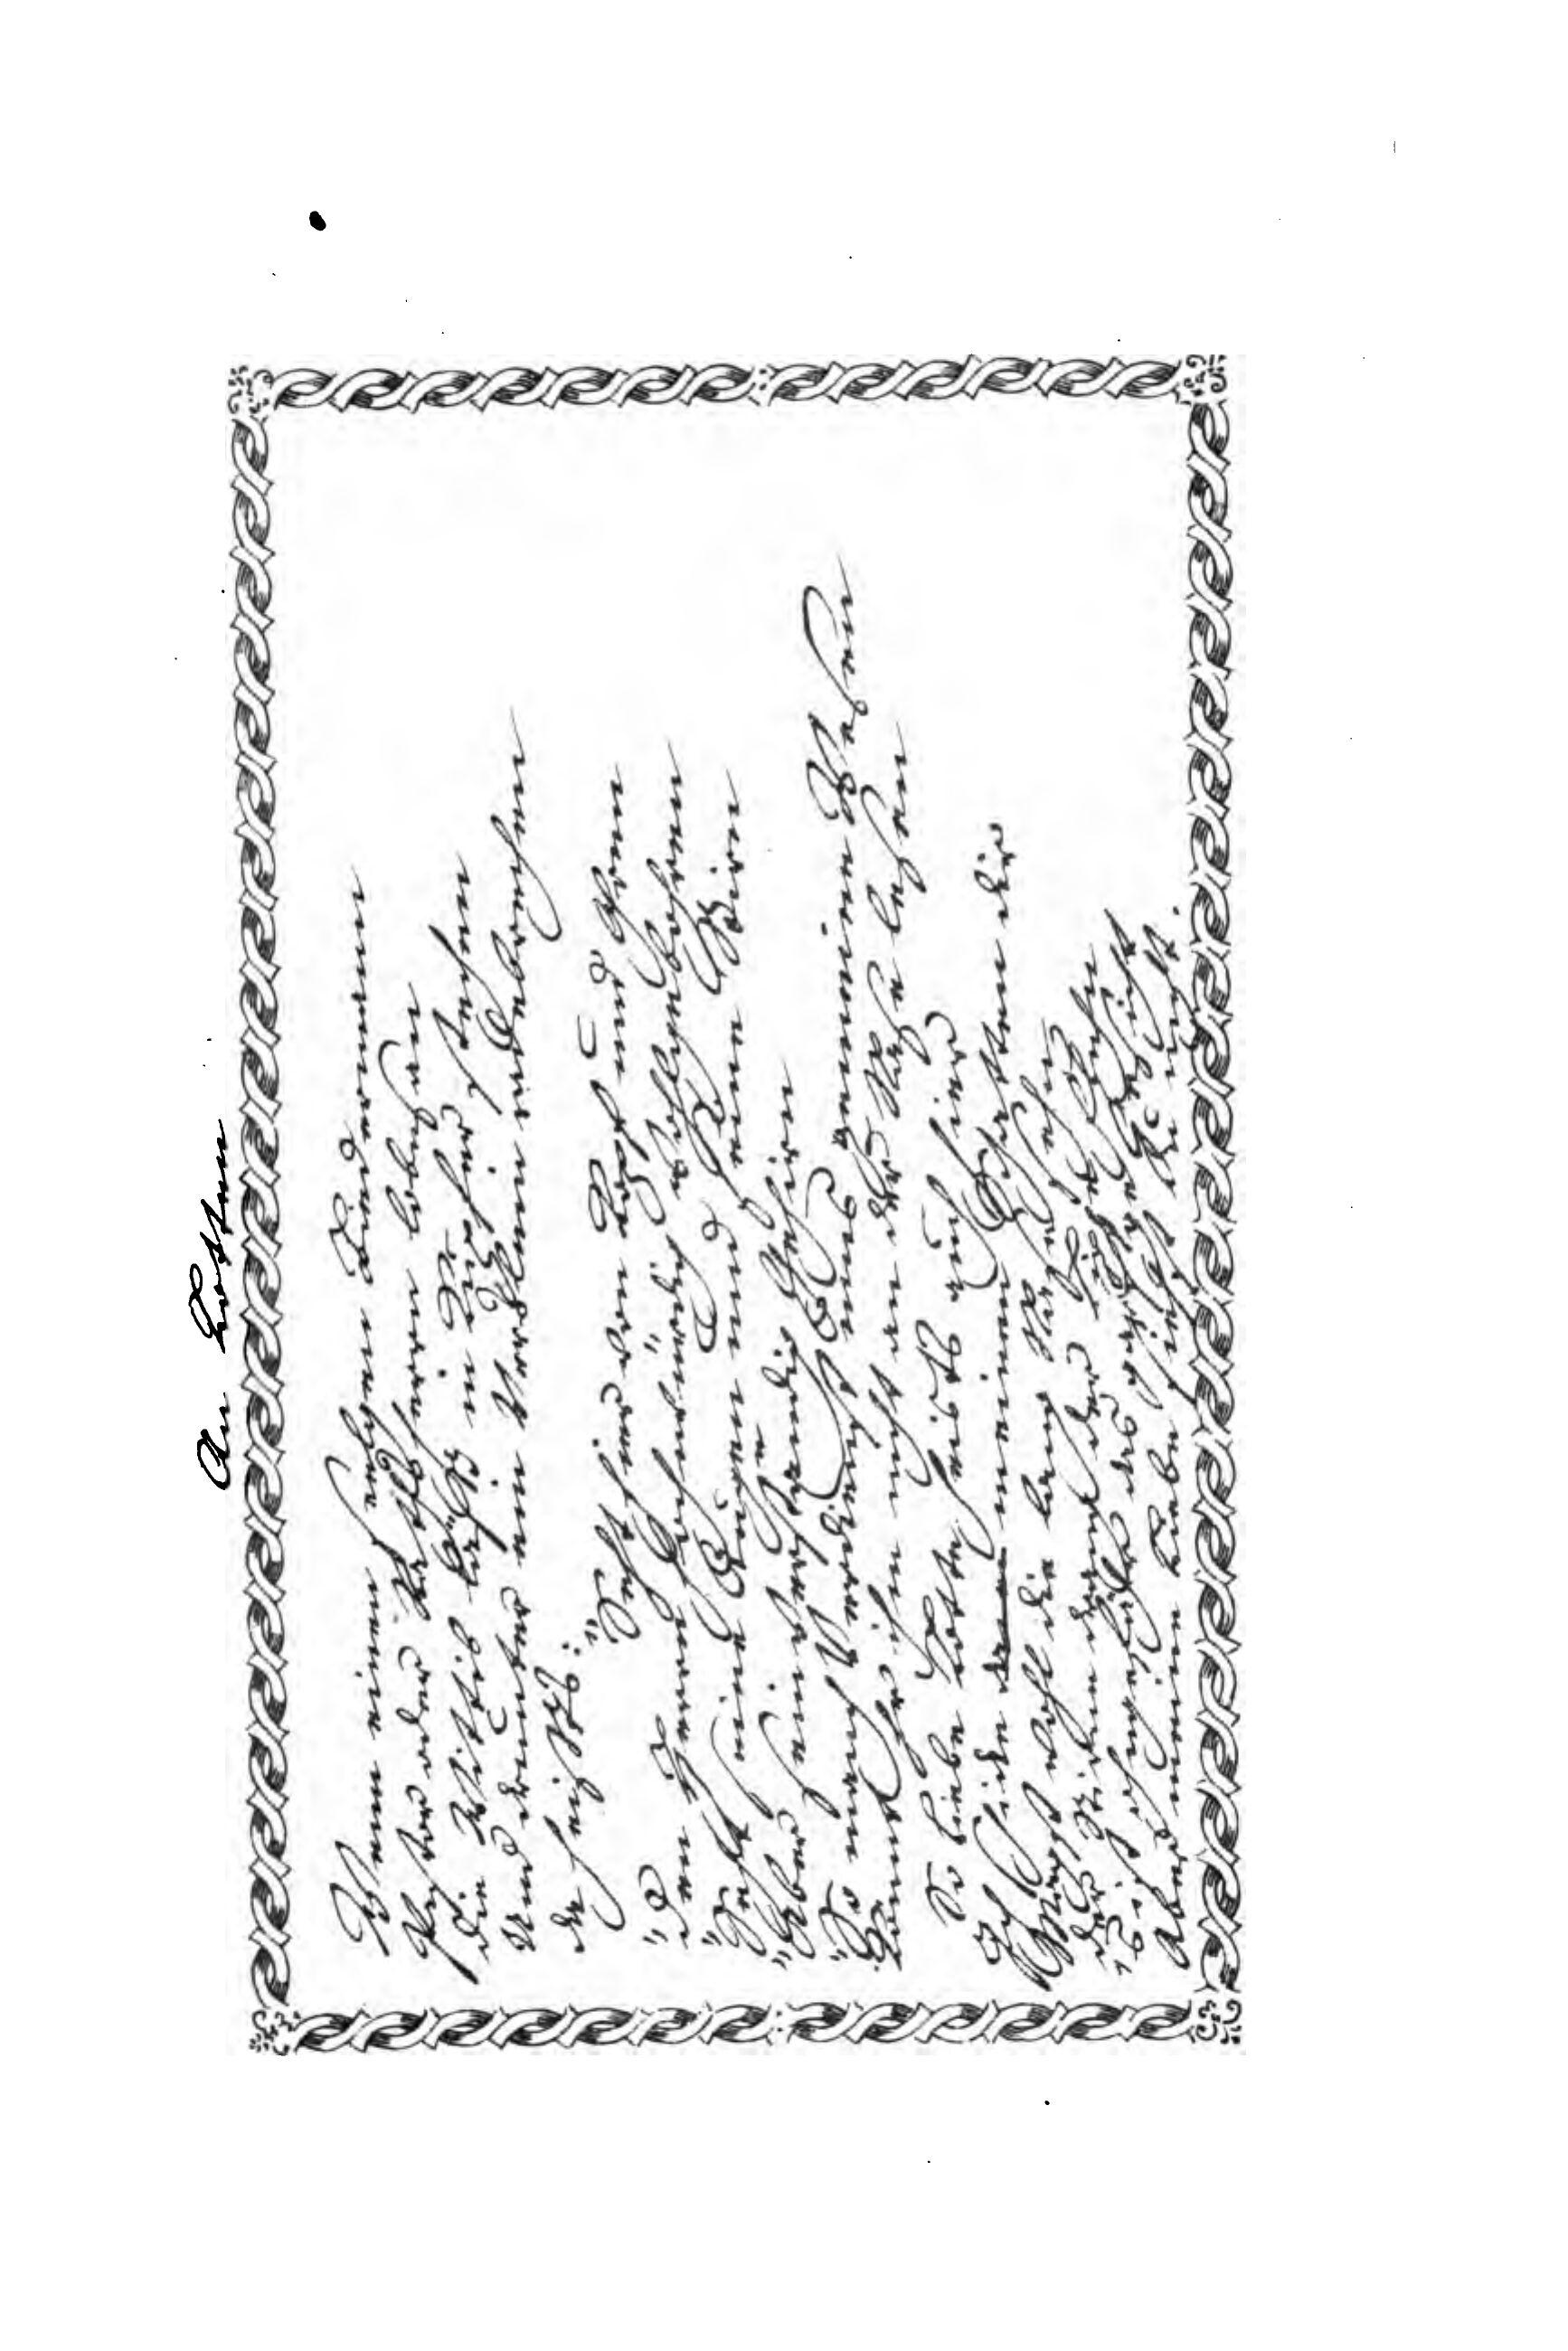 An Lotten
Wenn einen seelgen Biedermann
Pastor oder Rathsherrn lobesan
Die Wittib lässt in Kupfer stechen
Und drunter ein Verslein radebrechen
da heissts:
"Seht hier von Kopf und Ohren
"Den Herrn Ehrwürdig, Wohlgebohren
"Seht seine Augen und seine Stirn
"Aber sein verständig Gehirn
"So manch Verdienst ums gemeine Wesen
"Könnt ihr ihm nicht an der Nase lesen
So liebe Lotte heissts auch hier
Ich schicke meinen Schatten dir
Magst wohl die lange Nase sehn
der Stirne drang der Lippe Flehn
's ist ohngefähr das garstge Gesicht
Aber meine Liebe siehst du nicht.